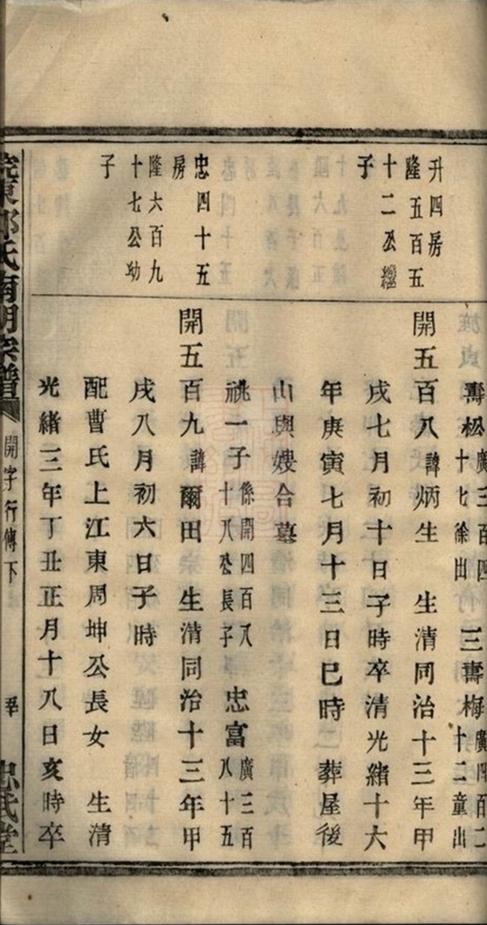 壽松廣三百四十七徐出 三壽梅廣四百二十二童出
升四房隆五百五十二公繼子
開五百八諱炳生 生清同治十三年甲
戌七月初十日子時卒清光緒十六
年庚寅七月十三日巳時 葬屋後
山與嫂合墓
祧一子係開四百八十八公長子 忠富廣三百八十五
忠四十五房隆六百九十七公幼子
開五百九諱爾田 生清同治十三年甲
戌八月初六日子時
配曹氏上江東周坤公長女 生清
光緒三年丁丑正月十八日亥時卒
氏南朋宗譜
開字行傳下
忠哉堂